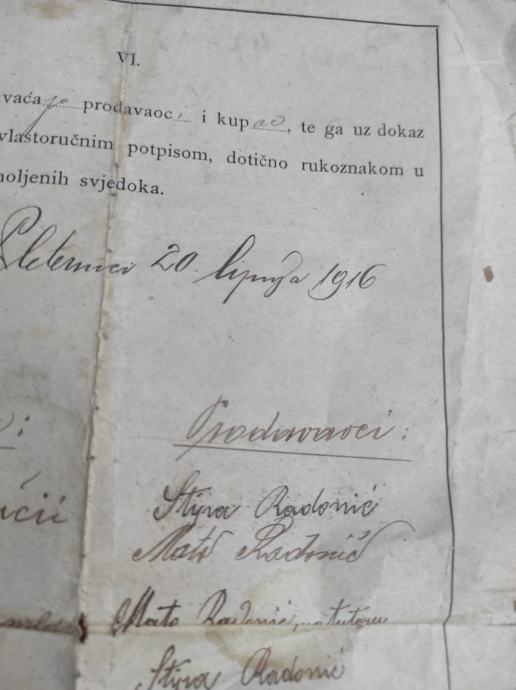 VI.
vaćaju prodavaoci i kupac, te ga uz dokaz
vlastoručnim potpisom, dotično rukoznakom u
moljenih svjedoka.
Pleternici 20. lipnja 1916
Prodavaoci:
Radonić
Mato Radonić
Mato Radonić,
Radonić